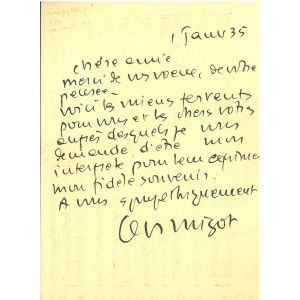 1 Janv 35
chère amie
merci de vos voeux, de votre
pensée –
voici les miens fervents
pour vous et les chers vôtres
auprès desquels je vous
demande d'être mon
interprète pour leur exprimer
mon fidèle souvenir.
A vous sympathiquement
Migot